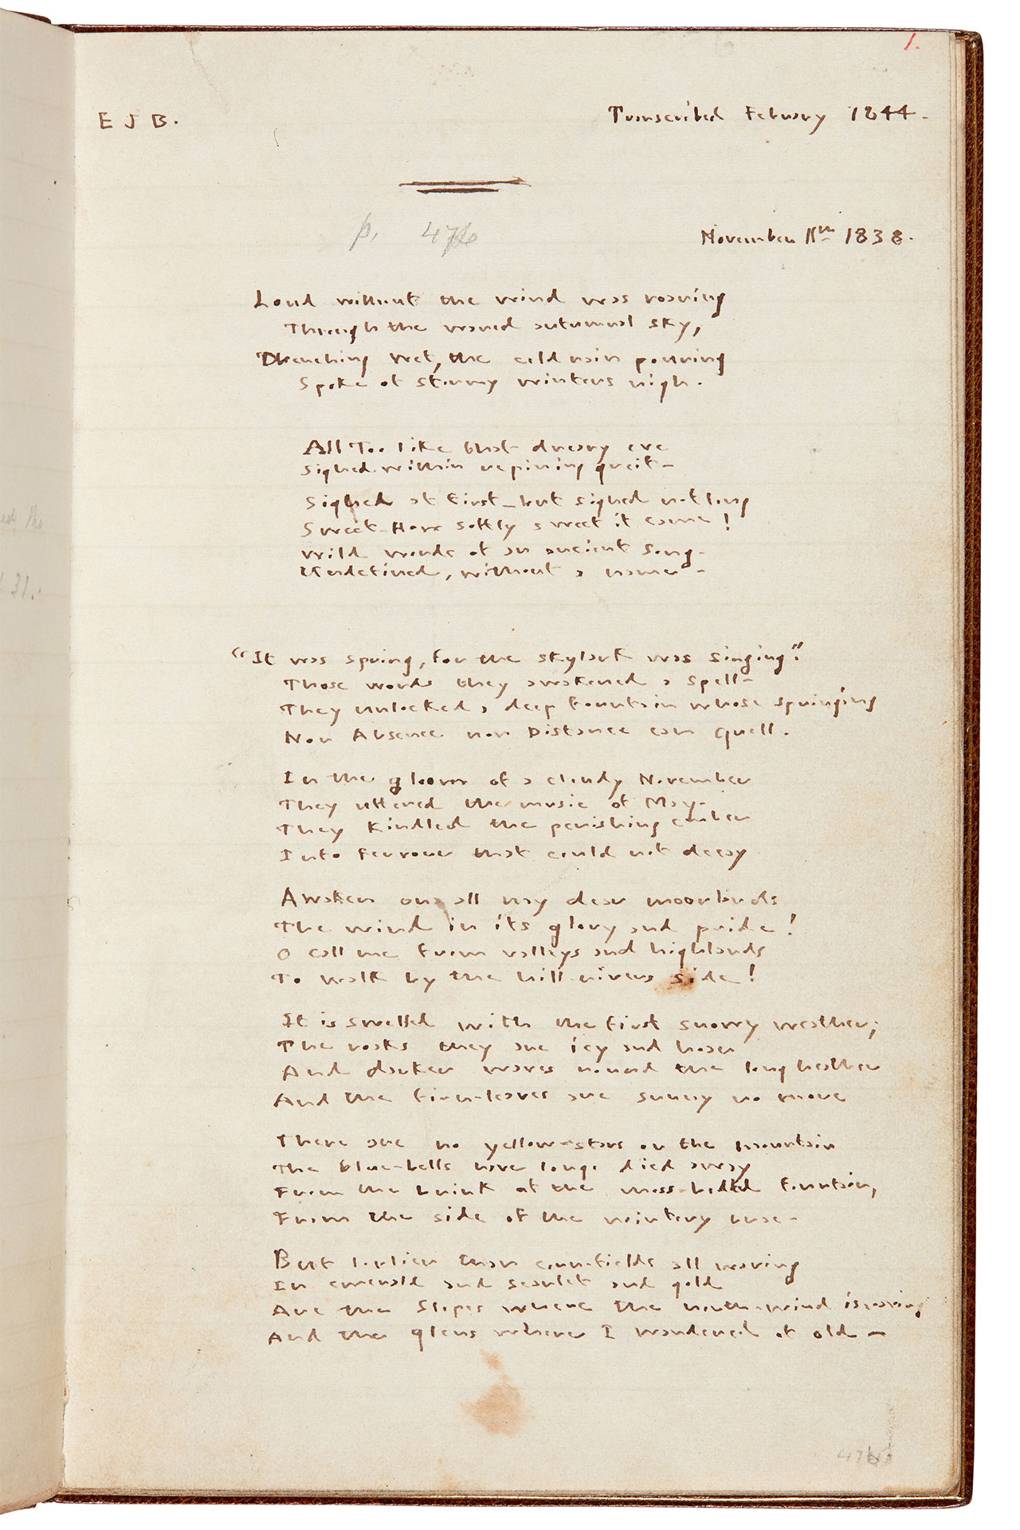 1.
E J B.
Transcribed Febuary 1844.
p. 476
November 11th 1838.
Loud without the wind was roaring
Through the waned autumnal sky,
Drenching wet, the cold rain pouring
Spoke of stormy winters nigh.
All too like that dreary eve
Sighed within repining greif-
Sighed at first-but sighed not long
Sweet-How softly sweet it came!
Wild words of an ancient song-
Undefined, without a name-
"It was spring, for the skylark was singing."
Those words they awakened a spell-
They unlocked a deep fountain whose springing
Nor Absence nor Distance can quell.
In the gloom of a cloudy November
They uttered the music of May-
They kindled the perishing ember
Into fervour that could not decay
Awaken on all my dear moorlands
The wind in its glory and pride!
O call me from valleys and highlands
To walk by the hill-rivers side!
It is swelled with the first snowy weather;
The rocks they are icy and hoar
And darker waves round the long heather
And the fern-leaves are sunny no more
There are no yellow-stars on the mountain
The blue-bells have long died away
From the brink of the moss-bedded fountain,
From the side of the wintery brae-
But lovlier than corn-fields all waving
In emerald and scarlet and gold
Are the slopes where the north-wind is raving
And the glens where I wandered of old-